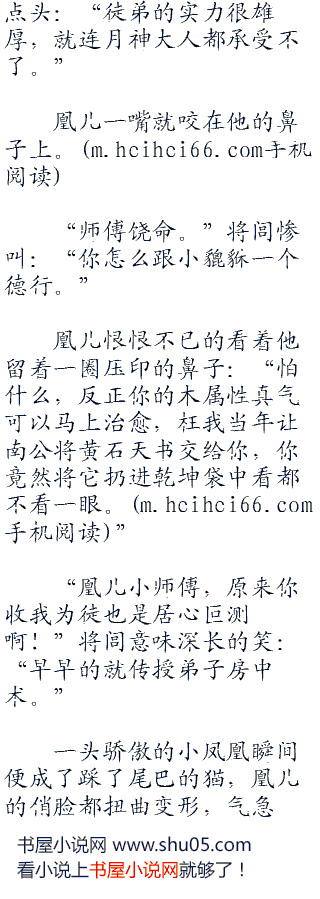 点头：“徒弟的实力很雄
厚，就连月神大人都承受不
了。”
凰儿一嘴就咬在他的鼻
子上。(m.hcihci66.com手机
阅读)
“师傅饶命。”将闾惨
叫：“你怎么跟小貔貅一个
德行。”
凰儿恨恨不已的看着他
留着一圈压印的鼻子：“怕
什么，反正你的木属性真气
可以马上治愈，枉我当年让
南公将黄石天书交给你，你
竟然将它扔进乾坤袋中看都
不看一眼。(m.hcihci66.com
手机阅读)”
“凰儿小师傅，原来你
收我为徒也是居心叵测
啊！”将闾意味深长的笑：
“早早的就传授弟子房中
术。”
一头骄傲的小凤凰瞬间
便成了踩了尾巴的猫，凰儿
的俏脸都扭曲变形，气急
书屋小说网 www.shu05.com
看小说上书屋小说网就够了！